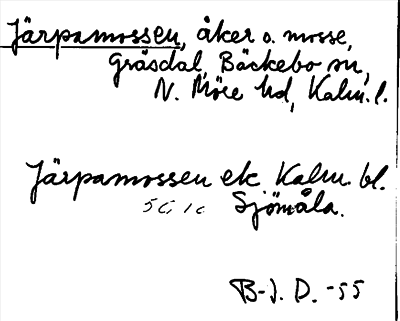 Järpamossen, åker o. mosse,
Gräsdal, Bäckebo sn,
N. Möre hd, Kalm. l.
Järpamossen ek. Kalm. bl.
5G1c Sjömåla.
B-J. D. -55